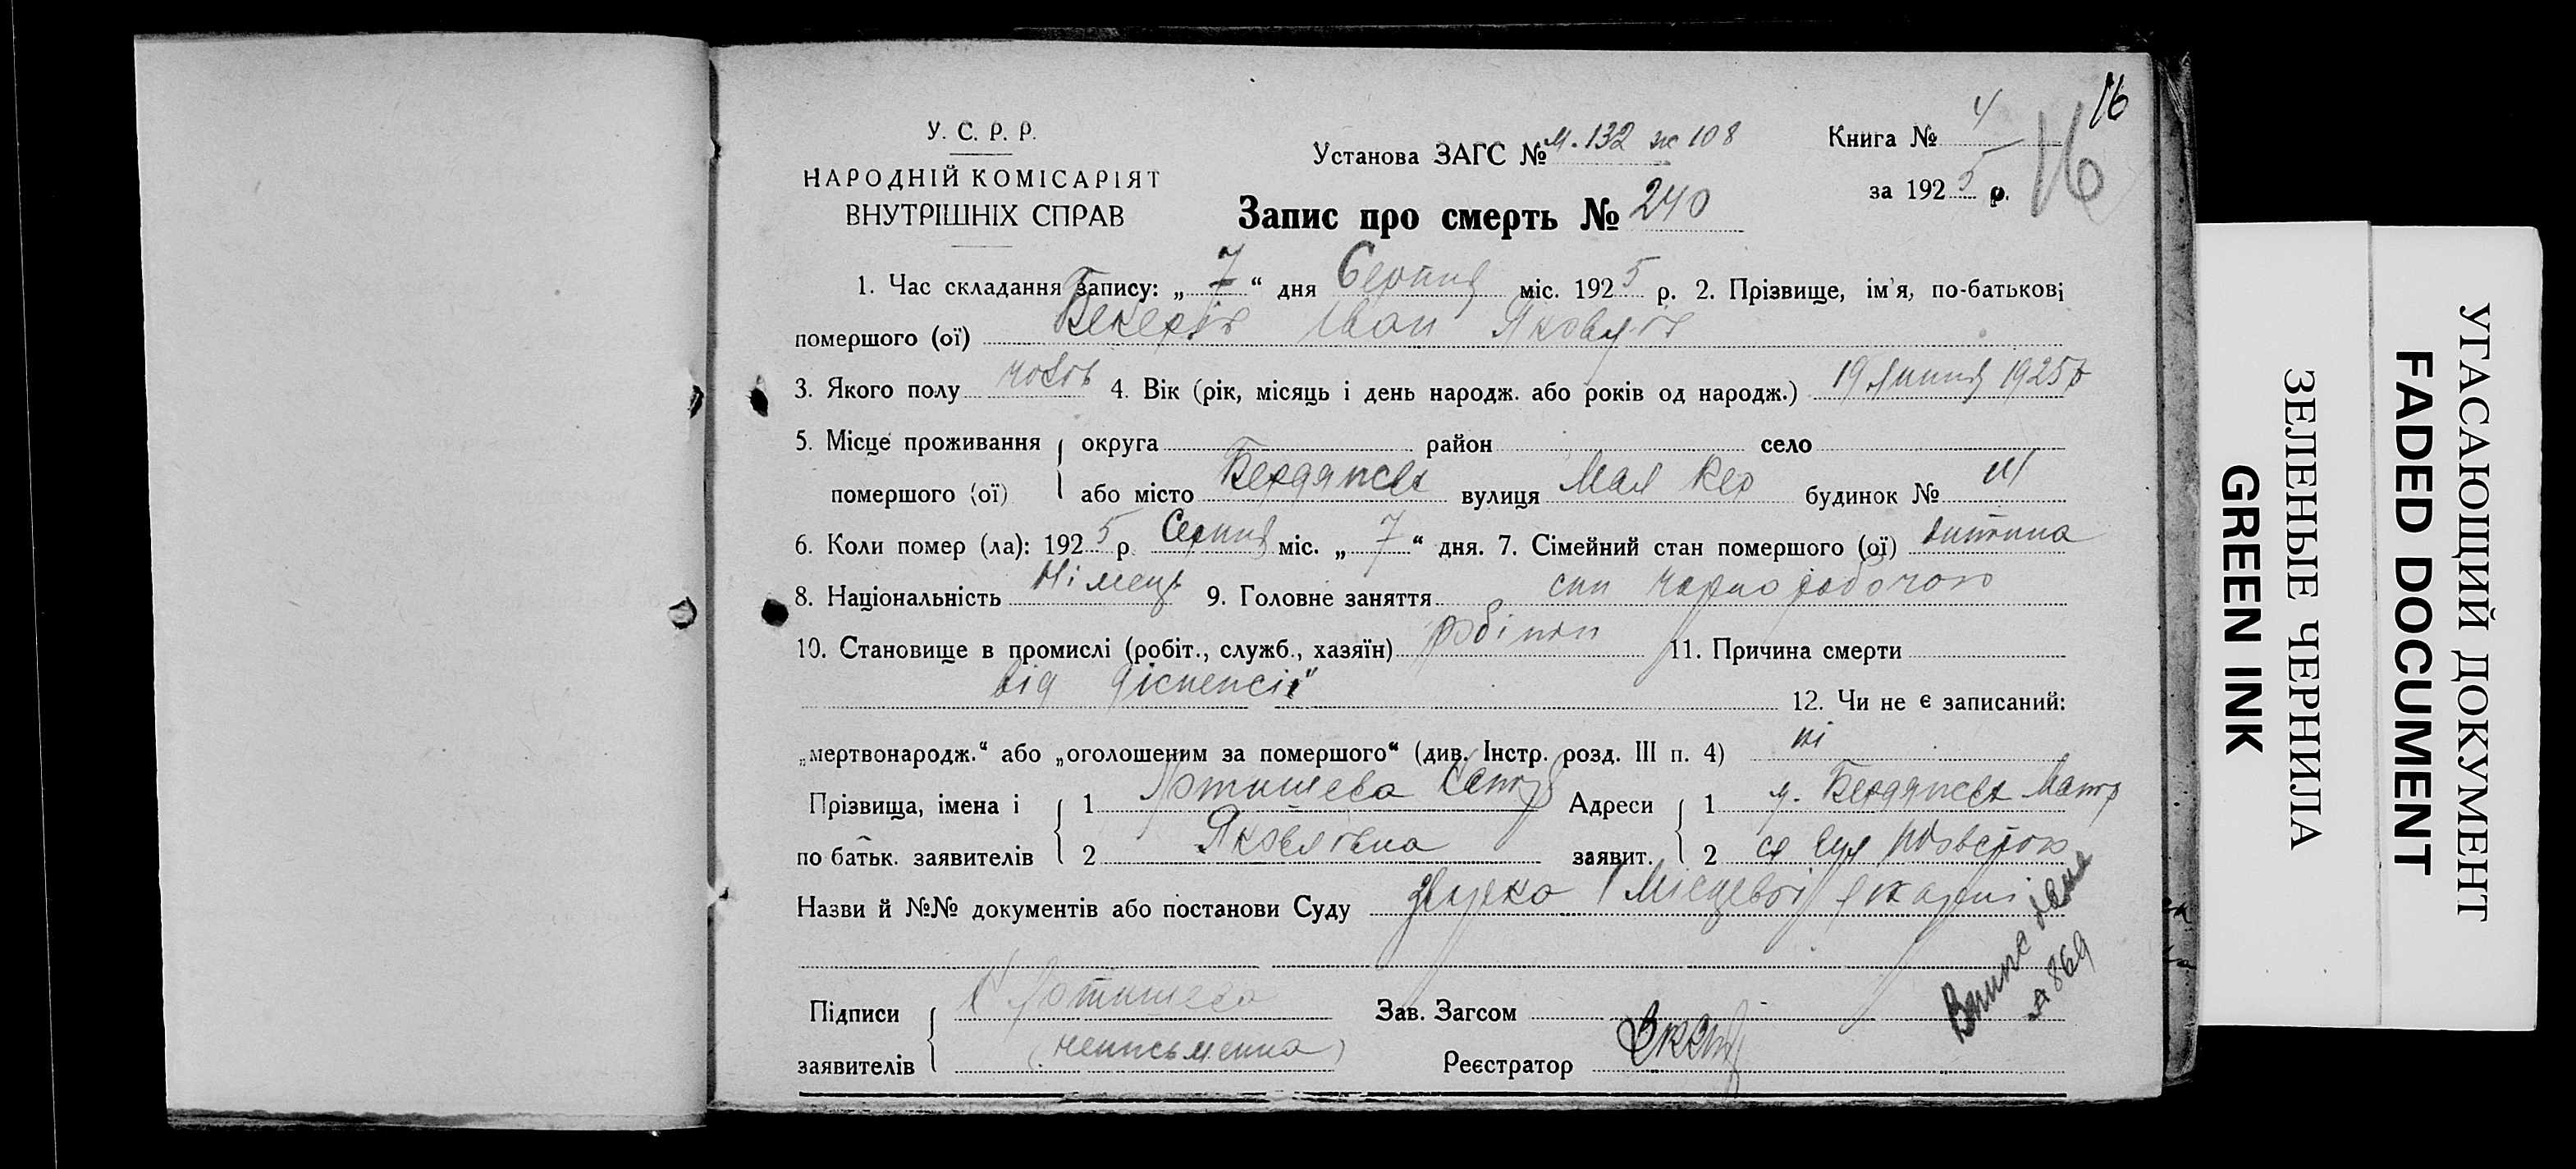 16
У. С. Р. Р.
НАРОДНІЙ КОМІСАРІЯТ
ВНУТРІШНІХ СПРАВ
Установа ЗАГС № м. 132 ж 108
Книга № 4
за 1925 р.
16
Запис про смерть № 240
1. Час складання запису: „7“ дня Серпня міс. 1925 р. 2. Прізвище, ім'я, по-батькові
помершого (ої) Іван Яковлів
3. Якого полу чолов 4. Вік (рік, місяць і день народж. або років од народж.) 19 липня 1925 р
5. Місце проживання округа район село
помершого (ої) або місто Бердянськ вулиця Мал будинок №
6. Коли помер (ла): 1925 р. Серпня міс. „7“ дня. 7. Сімейний стан помершого (ої) дитина
8. Національність Німець 9. Головне заняття син чорноробочого
10. Становище в промислі (робіт., служб., хазяїн) робітн 11. Причина смерти
від діспенсії
12. Чи не є записаний:
„мертвонародж.“ або „оголошеним за помершого“ (див. Інстр. розд. III п. 4) ні
Прізвища, імена і 1 Адреси 1 Бердянськ
по батьк. заявителів 2 Яковлівна заявит. 2
Назви й №№ документів або постанови Суду Місцевої
Підписи
заявителів (неписьменна)
Зав. Загсом
Реєстратор
Випис дана
869
УГАСАЮЩИЙ ДОКУМЕНТ
FADED DOCUMENT
ЗЕЛЕНЫЕ ЧЕРНИЛА
GREEN INK